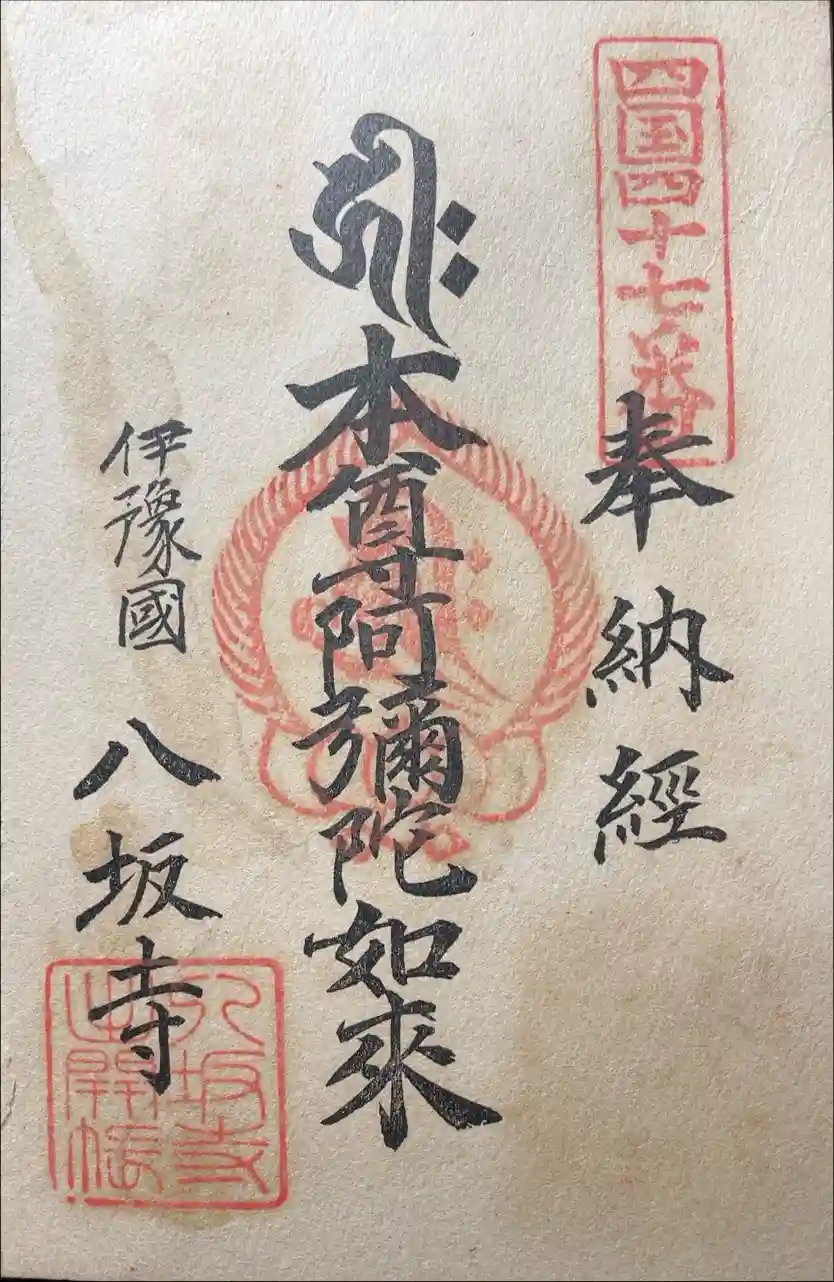 四国四十七番
奉納經
本尊阿彌陀如來
伊豫國 八坂寺
八坂寺
開帳